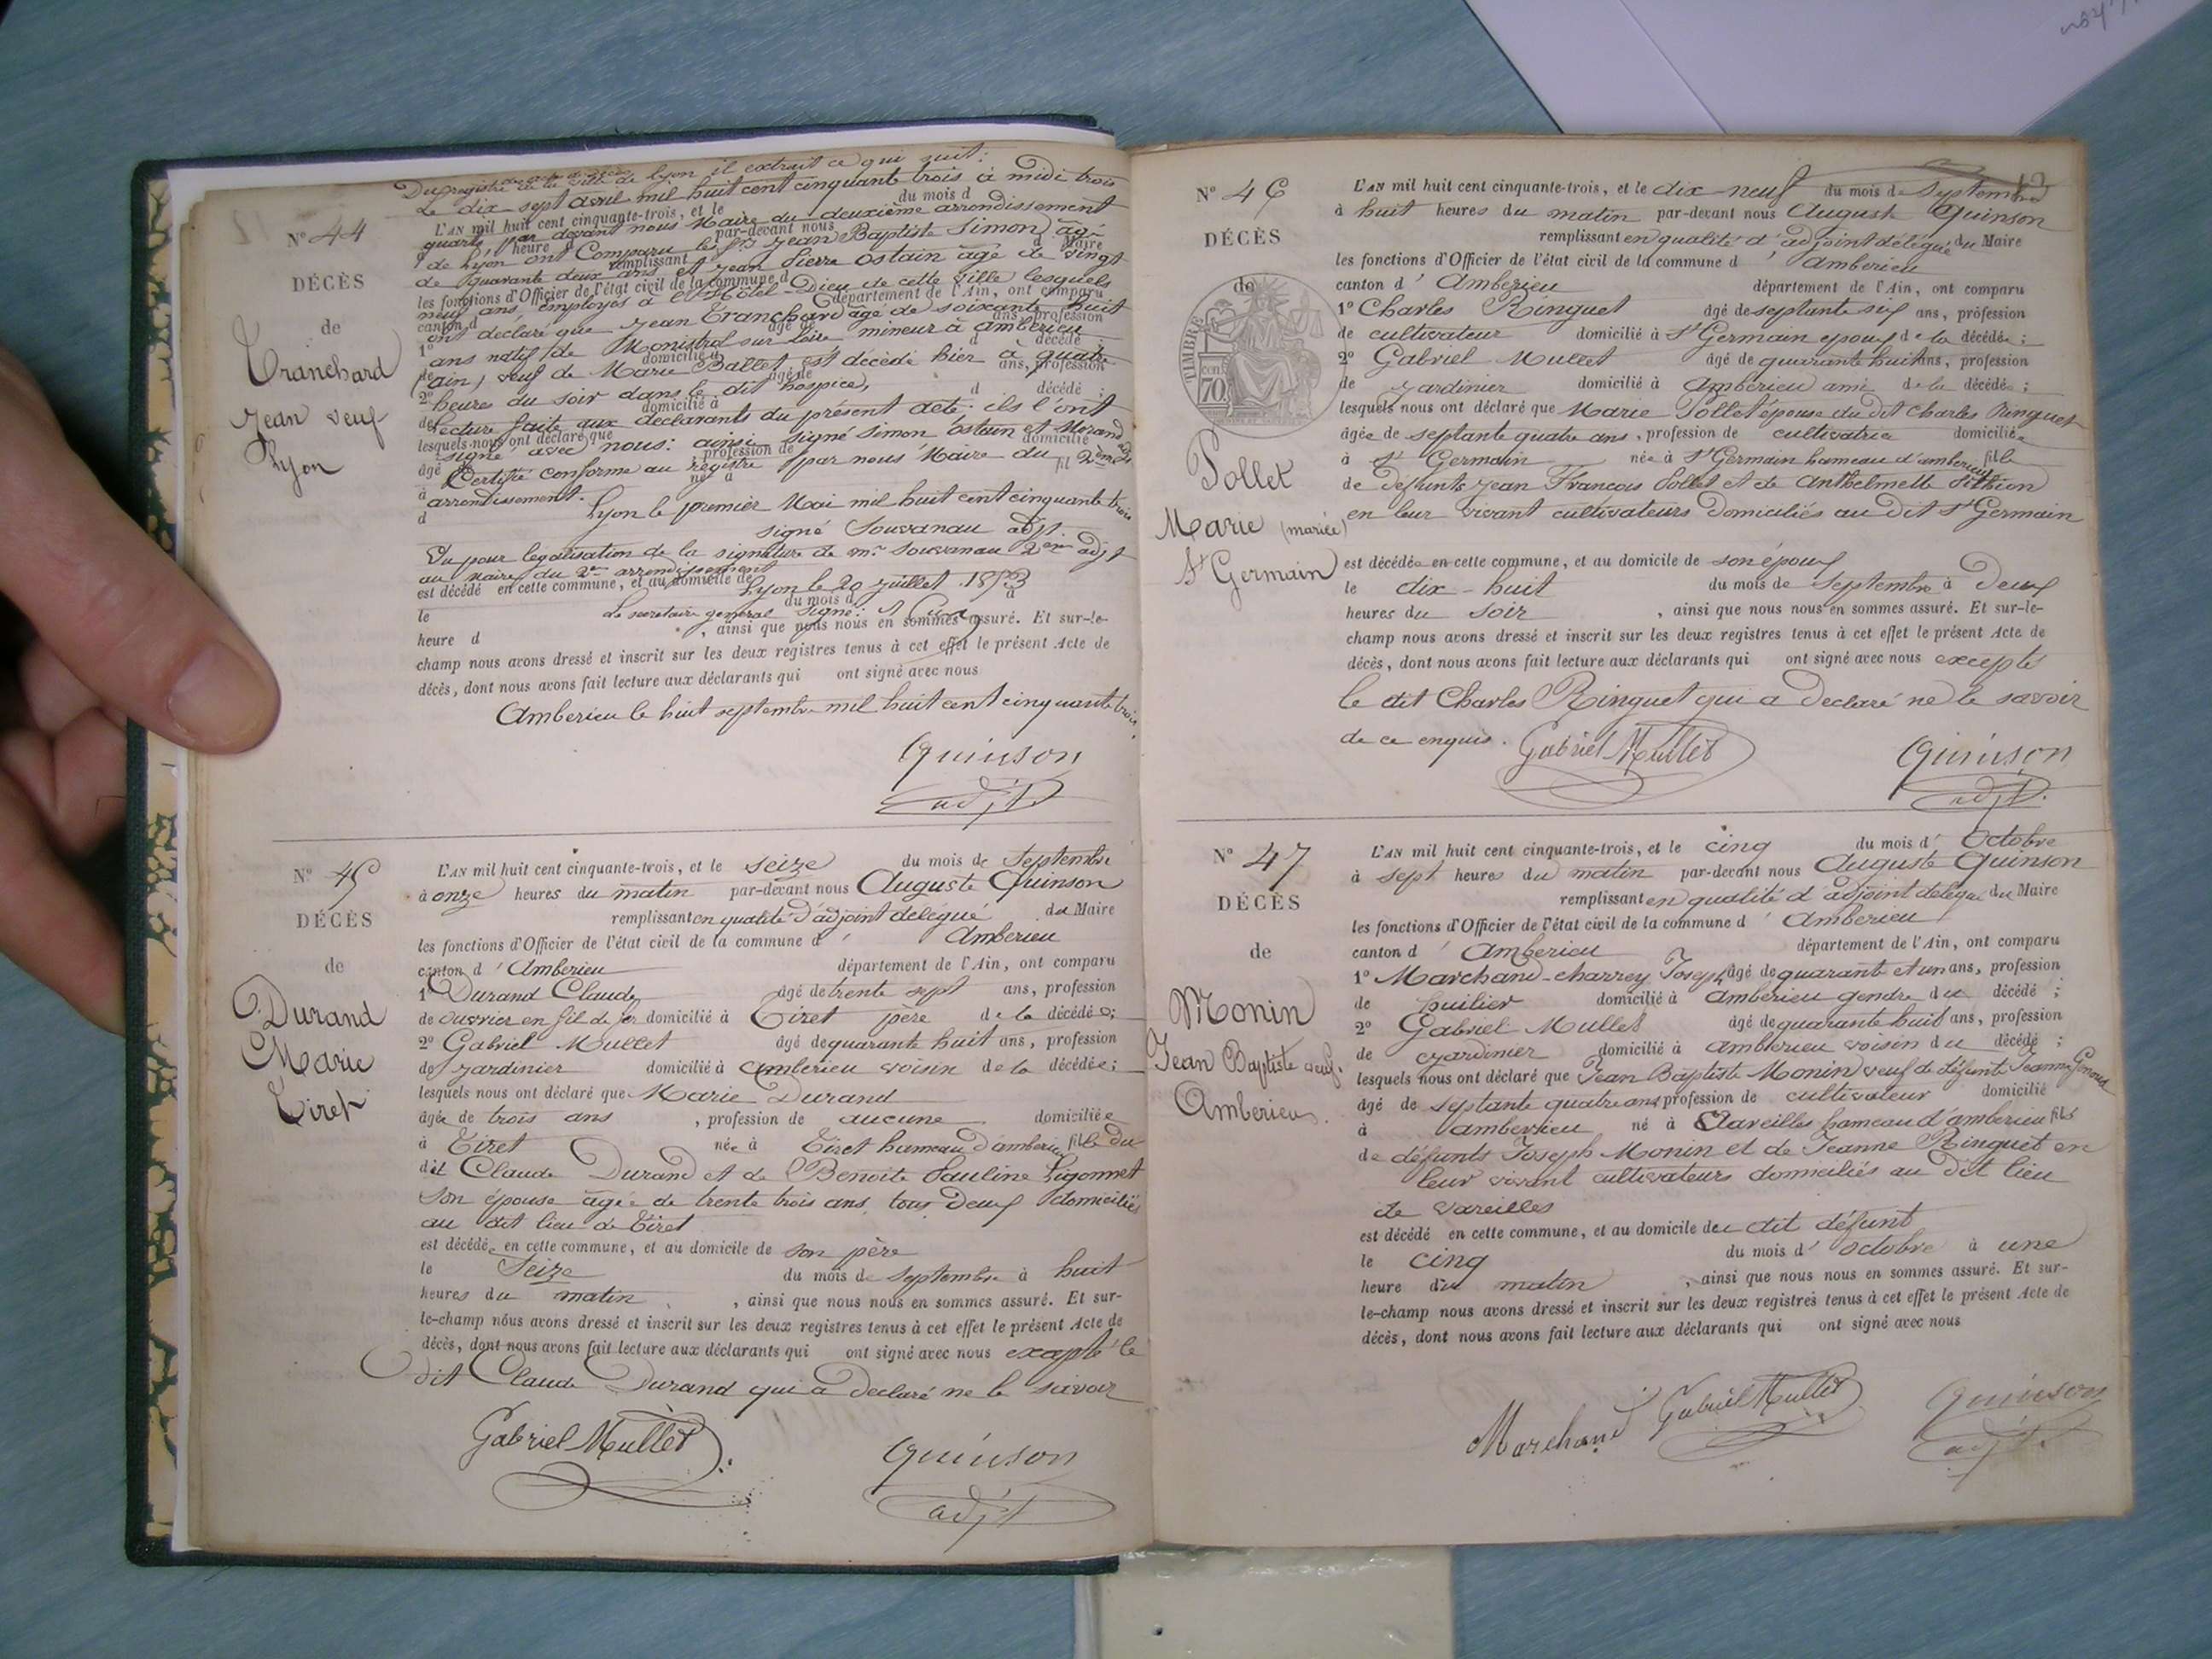 Du registre des actes de décès de la ville de Lyon il extrait ce qui suit:
Le dix sept avril mil huit cent cinquante trois à midi trois
L'AN mil huit cent cinquante-trois, et le du mois d
quarts, par devant nous Maire du deuxième arrondissement
heure par-devant nous
de Lyon ont Comparu les Srs Jean Baptiste Simon âgé
remplissant d Maire
de quarante deux ans et Jean Pierre Ostain âgé de vingt
les fonctions d'Officier de l'état civil de la commune d
neuf ans, employés à l'Hôtel-Dieu de cette ville lesquels
canton d département de l'Ain, ont comparu
ont déclaré que Jean Tranchard âgé de soixante huit
1° âgé de ans, profession
ans natif de Monistrol sur Loire mineur à amberieu
de domicilié à d décédé ;
(ain) veuf de Marie Ballet est décédé hier à quatre
2° âgé de ans, profession
heures du soir dans le dit hospice,
de domicilié à d décédé ;
Lecture faite aux declarants du présent acte; ils l'ont
lesquels nous ont déclaré que
signé avec nous: ainsi signé Simon Ostain et Morand adjt
âgé de profession de domicilié
Certifié conforme au registre par nous Maire du 2ème
à né à fil
arrondissement.
d Lyon le premier Mai mil huit cent cinquante trois
signé Souvanau adjt
Vu pour légalisation de la signature de mr Souvanau 2ème adjt
au maire du 2me arrondissement
est décédé en cette commune, et au domicile de Lyon le 20 juillet 1853
le du mois d à
Le secretaire general signé:
heure d , ainsi que nous nous en sommes assuré. Et sur-le-
champ nous avons dressé et inscrit sur les deux registres tenus à cet effet le présent Acte de
décès, dont nous avons fait lecture aux déclarants qui ont signé avec nous
Amberieu le huit septembre mil huit cent cinquante trois.
Quinson
adjt
N° 44
DÉCÈS
de
Tranchard
Jean veuf
Lyon
N° 45
DÉCÈS
de
Durand
Marie
Tiret
L'AN mil huit cent cinquante-trois, et le seize du mois de Septembre
à onze heures du matin par-devant nous Auguste Quinson
remplissant en qualité d'adjoint délégué du Maire
les fonctions d'Officier de l'état civil de la commune d' Amberieu
canton d' Amberieu département de l'Ain, ont comparu
1° Durand Claude âgé de trente sept ans, profession
de ouvrier en fil de fer domicilié à Tiret père de la décédée;
2° Gabriel Mullet âgé de quarante huit ans, profession
de jardinier domicilié à amberieu voisin de la décédée;
lesquels nous ont déclaré que Marie Durand
âgée de trois ans , profession de aucune domiciliée
à Tiret née à Tiret hameau d'amberieu fille du
dit Claude Durand et de Benoite Pauline Ligonnet
son épouse agée de trente trois ans, tous deux domiciliés
au dit lieu de Tiret
est décédée en cette commune, et au domicile de son père
le Seize du mois de Septembre à huit
heures du matin , ainsi que nous nous en sommes assuré. Et sur-
le-champ nous avons dressé et inscrit sur les deux registres tenus à cet effet le présent Acte de
décès, dont nous avons fait lecture aux déclarants qui ont signé avec nous excepté le
dit Claude Durand qui a declaré ne le savoir
Gabriel Mullet
Quinson
adjt
N° 46
DÉCÈS
de
TIMBRE
70
Pollet
Marie (mariée)
St Germain
L'AN mil huit cent cinquante-trois, et le dix-neuf du mois de Septembre
à huit heures du matin par-devant nous Auguste Quinson
remplissant en qualité d'adjoint délégué du Maire
les fonctions d'Officier de l'état civil de la commune d' Amberieu
canton d' Amberieu département de l'Ain, ont comparu
1° Charles Ringuet âgé de septante six ans, profession
de cultivateur domicilié à St Germain epoux de la décédée;
2° Gabriel Mullet âgé de quarante huit ans, profession
de jardinier domicilié à Amberieu ami de la décédée;
lesquels nous ont déclaré que Marie Pollet épouse du dit Charles Ringuet
âgée de septante quatre ans, profession de cultivatrice domiciliée
à St Germain née à St Germain hameau d'amberieu fille
de défunts Jean François Pollet et de Anthelmette Pithion
en leur vivant cultivateurs Domiciliés au dit St Germain
est décédée en cette commune, et au domicile de son époux
le dix-huit du mois de Septembre à Deux
heures du soir , ainsi que nous nous en sommes assuré. Et sur-le-
champ nous avons dressé et inscrit sur les deux registres tenus à cet effet le présent Acte de
décès, dont nous avons fait lecture aux déclarants qui ont signé avec nous excepté
le dit Charles Ringuet qui a Declaré ne le savoir
de ce enquis. Gabriel Mullet
Quinson
adjt.
N° 47
DÉCÈS
de
Monin
Jean Baptiste veuf.
Amberieu.
L'AN mil huit cent cinquante-trois, et le cinq du mois d' Octobre
à sept heures du matin par-devant nous Auguste Quinson
remplissant en qualité d'adjoint délégué du Maire
les fonctions d'Officier de l'état civil de la commune d' Amberieu
canton d' Amberieu département de l'Ain, ont comparu
1° Marchand-charrey Joseph âgé de quarante et un ans, profession
de huilier domicilié à Amberieu gendre du décédé ;
2° Gabriel Mullet âgé de quarante huit ans, profession
de jardinier domicilié à Amberieu voisin du décédé ;
lesquels nous ont déclaré que Jean Baptiste Monin veuf de défunte Jeanne Genoud
âgé de septante quatre ans profession de cultivateur domicilié
à amberieu né à Vareilles hameau d'amberieu fils
de défunts Joseph Monin et de Jeanne Ringuet en
leur vivant cultivateurs domiciliés au Dit lieu
de Vareilles
est décédé en cette commune, et au domicile du dit défunt
le cinq du mois d' octobre à une
heure du matin , ainsi que nous nous en sommes assuré. Et sur-
le-champ nous avons dressé et inscrit sur les deux registres tenus à cet effet le présent Acte de
décès, dont nous avons fait lecture aux déclarants qui ont signé avec nous
Marchand Gabriel Mullet Quinson
adjt.